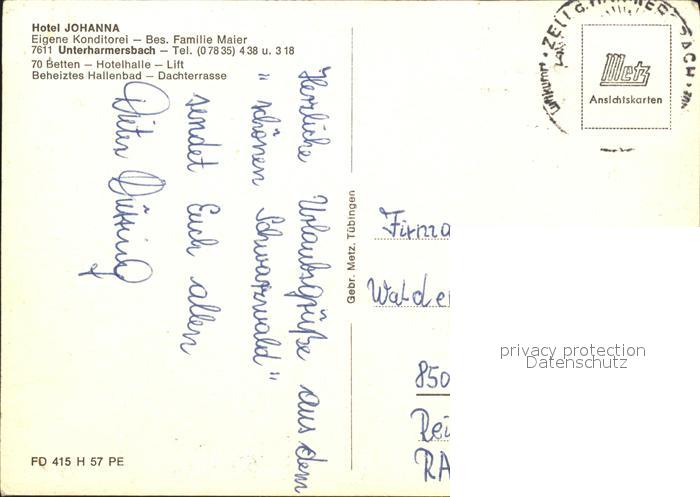 Hotel JOHANNA
Eigene Konditorei — Bes. Familie Maier
7611 Unterharmersbach — Tel. (0 78 35) 4 38 u. 3 18
70 Betten — Hotelhalle — Lift
Beheiztes Hallenbad — Dachterrasse
Herzliche Urlaubsgrüße aus dem
" schönen Schwarzwald "
sendet Euch allen
Dieter
FD 415 H 57 PE
Gebr. Metz, Tübingen
Metz
Ansichtskarten
Firma
850
privacy protection
Datenschutz